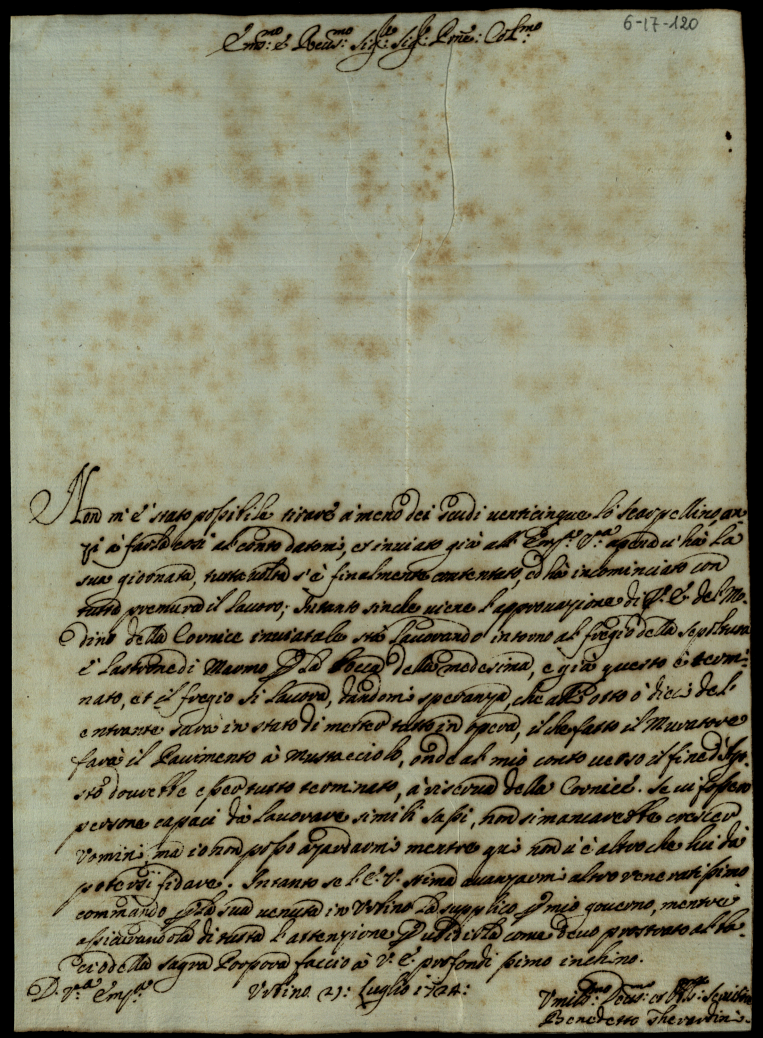 6-17-120
Em̃o: e Reus:mo Sig:re Sig:re Pñe: Col:mo
Non m'è stato possibile tirare à meno dei scudi venticinque lo scarpellino, an
zi à farlo così al conto datomi, et inviato già all' Em:a V:ra apena ci hà la
sua giornata, tutta volta s'è finalmente contentato, ed hà incominciato con
tutta premura il lavoro; Intanto sinche viene l'approvazione di V. E. del Mo-
dino della Cornice inviatale stà lavorando intorno al fregio della sepoltura
è lastrone di Marmo p la bocca della medesima, e già questo è termi-
nato, et il fregio si lavora, dandomi speranza, che alli otto ò dieci del
entrante sarà in stato di metter tutto in opera, il che fatto il Muratore
farà il Pavimento à mustacciolo, onde al mio conto verso il fine d'Ago-
sto dovrebbe esser tutto terminato, à riserva della Cornice. Se vi fossero
persone capaci dà lavorare simili sassi, non si mancarebbe crescer
Uomini, ma io non posso azardarmi mentre quì non c'è altro che lui dà
potersi fidare. Intanto se l'E. V. stima avanzarmi altro veneratissimo
commando p la sua venuta in Urbino la supplico p mio governo, mentre
assicurandola di tutta l'attenzione, p ubidirla come devo prostrato al ba-
cio della sagra Porpora faccio à V. E. profondissimo inchino.
D. V:ra Em:a Urbino 21: Luglio 1724:
Umil:mo Deus:mo et Obl:mo Servitore
Benedetto